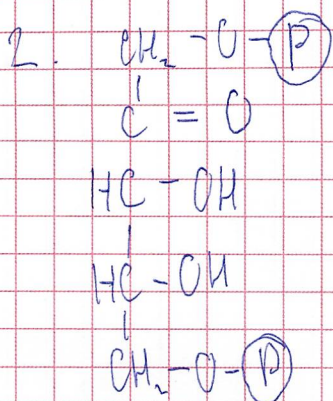 2. CH₂ - O - P
C = O
HC - OH
HC - OH
CH₂ - O - P